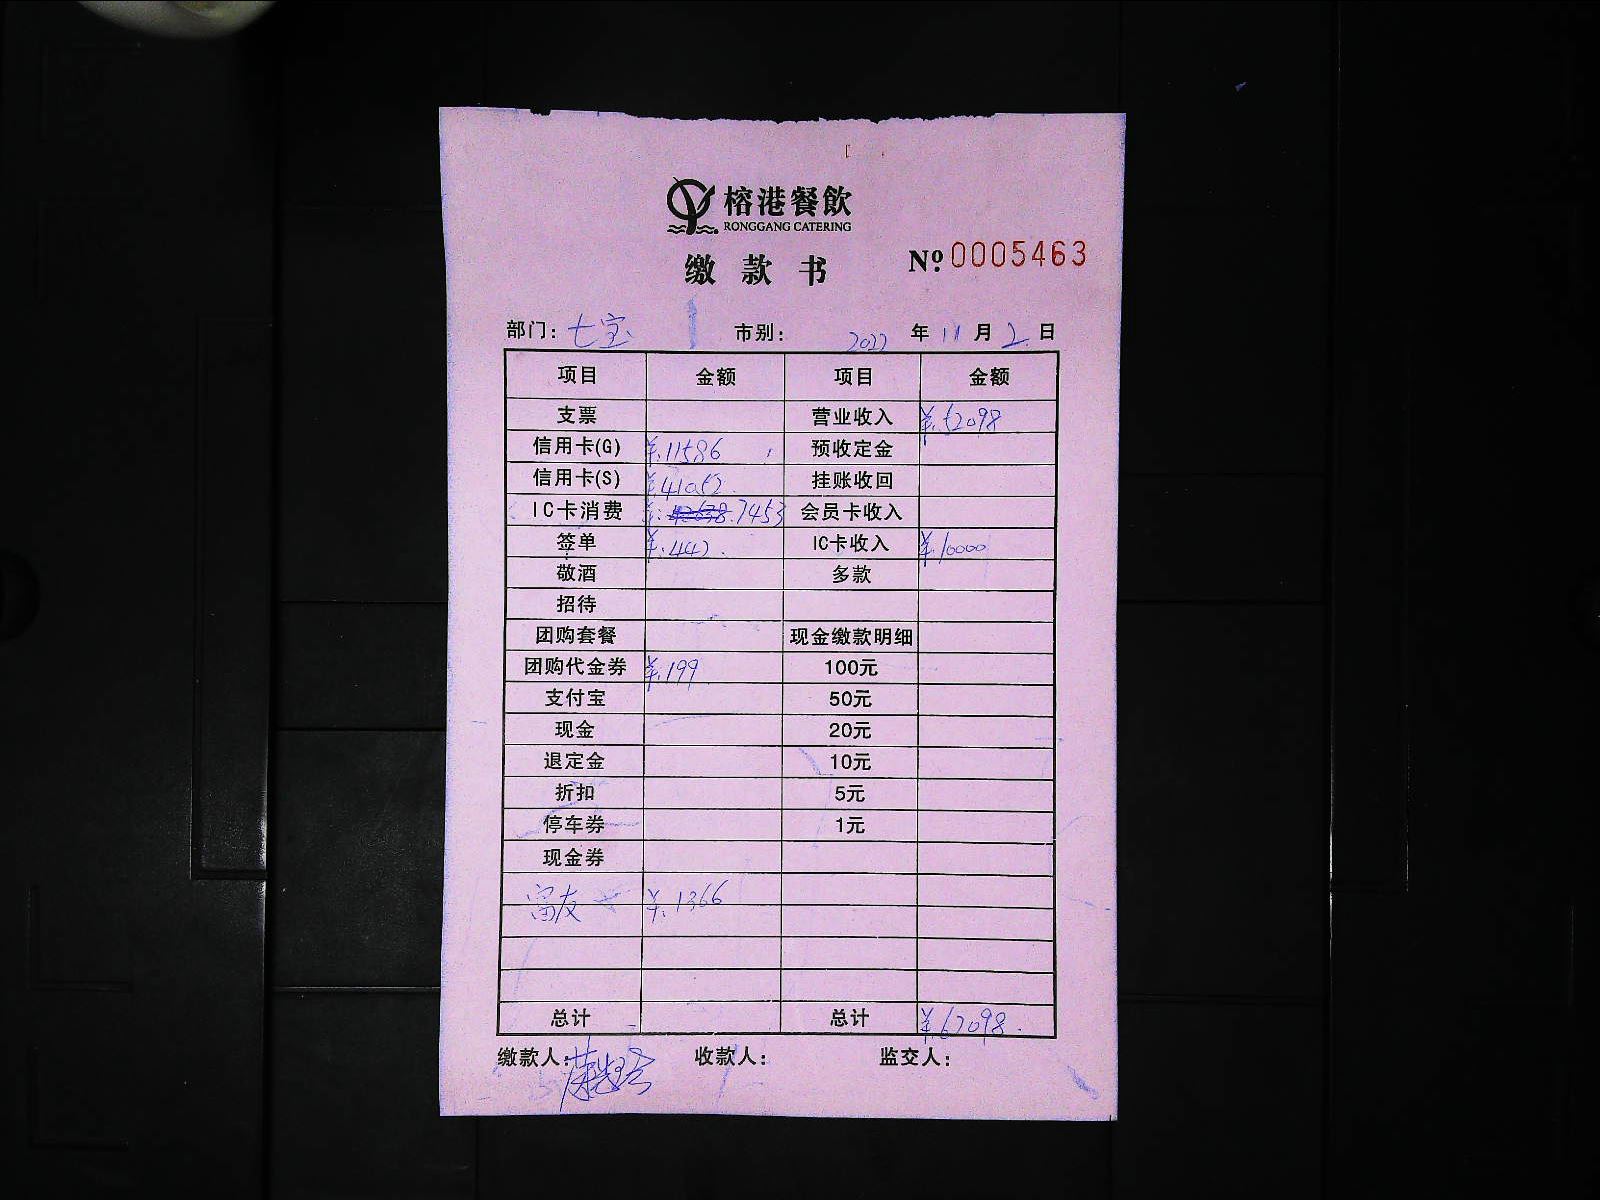 榕港餐飲
RONGGANG CATERING
缴款书 Nº 0005463
部门: 七宝 市别: 2022 年 11 月 2 日
项目 金额 项目 金额
支票 营业收入 ¥.52098
信用卡(G) ¥.11586 预收定金
信用卡(S) ¥41052. 挂账收回
IC卡消费 ¥: 7453 会员卡收入
签单 ¥.442. IC卡收入 ¥.10000
敬酒 多款
招待
团购套餐 现金缴款明细
团购代金券 ¥.199 100元
支付宝 50元
现金 20元
退定金 10元
折扣 5元
停车券 1元
现金券
富友 ¥.1366
总计 总计 ¥.62098.
缴款人: 收款人: 监交人: